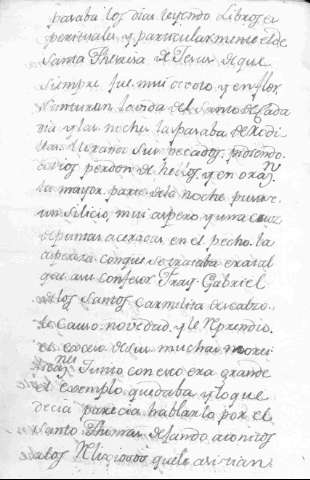 pasaba los dias leyendo Libros es
pirituales y particularmente el de
Santa Theresa de Jesus de que
siempre fue mui devoto y en
la vida del Santo de Cada
dia y las noches las pasaba de Rodi
llas llorando sus pecados pidiendo
a Dios perdon de ellos y en oraz.n
la mayor parte de la noche
un silicio mui aspero y una cruz
de puntas aceradas en el pecho la
aspereza con que se trataba era tal
que a su confesor Fray Gabriel
de los Santos Carmelita descalzo
le causo novedad y le Reprendio
el exceso de sus muchas morti
Junto con eso era grande
el exemplo que daba y lo que
decia parecia hablarlo por el
Santo Thomas dejando atonitos
a los Religiosos que le asistian